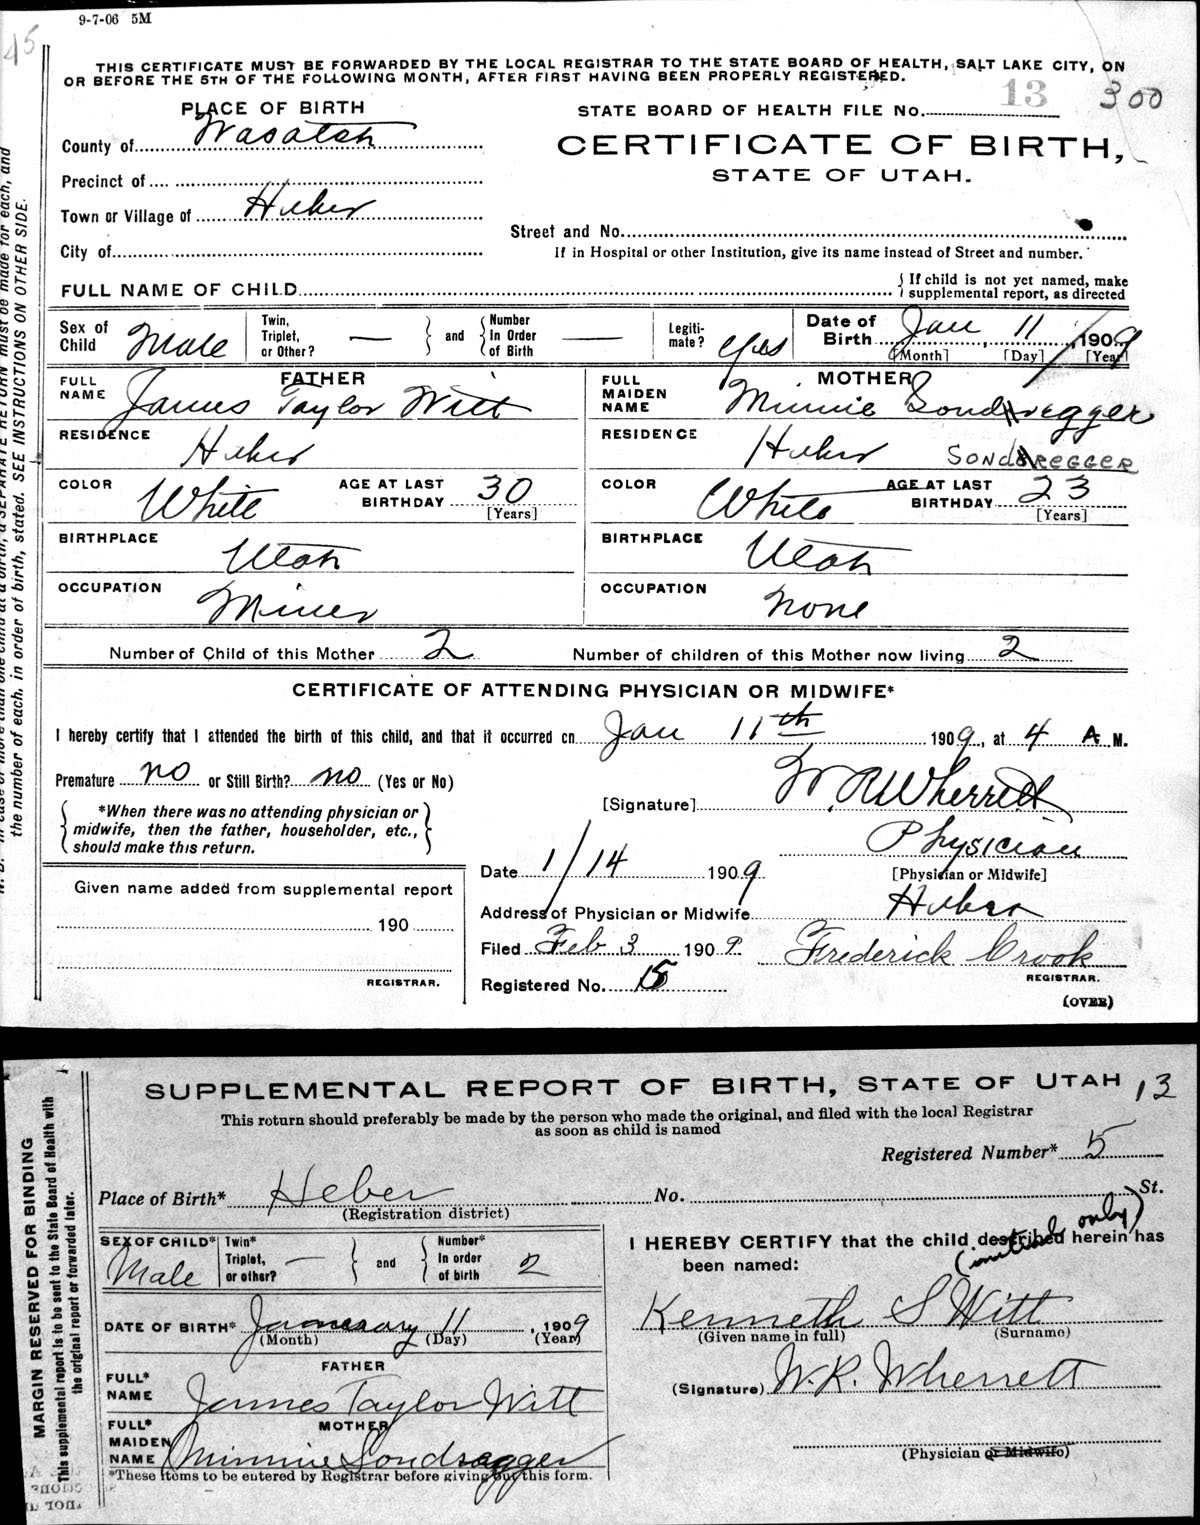 9-7-06 5M
45
THIS CERTIFICATE MUST BE FORWARDED BY THE LOCAL REGISTRAR TO THE STATE BOARD OF HEALTH, SALT LAKE CITY, ON
OR BEFORE THE 5TH OF THE FOLLOWING MONTH, AFTER FIRST HAVING BEEN PROPERLY REGISTERED.
PLACE OF BIRTH
STATE BOARD OF HEALTH FILE No. 13 300
County of Wasatch
CERTIFICATE OF BIRTH,
STATE OF UTAH.
Precinct of
Town or Village of Heber
Street and No.
City of
If in Hospital or other Institution, give its name instead of Street and number.
FULL NAME OF CHILD
{ If child is not yet named, make
supplemental report, as directed
Sex of Child Male
Twin, Triplet, or Other? —
and
Number In Order of Birth —
Legiti-mate? yes
Date of Birth Jan 11, 1909
[Month] [Day] [Year]
FATHER
FULL NAME James Taylor Witt
MOTHER
FULL MAIDEN NAME Minnie Sondregger
RESIDENCE Heber
RESIDENCE Heber SONDREGGER
COLOR White AGE AT LAST BIRTHDAY 30 [Years]
COLOR White AGE AT LAST BIRTHDAY 23 [Years]
BIRTHPLACE Utah
BIRTHPLACE Utah
OCCUPATION Miner
OCCUPATION None
Number of Child of this Mother 2 Number of children of this Mother now living 2
CERTIFICATE OF ATTENDING PHYSICIAN OR MIDWIFE*
I hereby certify that I attended the birth of this child, and that it occurred on Jan 11th 1909, at 4 A M.
Premature no or Still Birth? no (Yes or No)
[Signature] W. R. Wherrett
*When there was no attending physician or
midwife, then the father, householder, etc.,
should make this return.
Physician
[Physician or Midwife]
Date 1/14 1909
Given name added from supplemental report
190
REGISTRAR.
Address of Physician or Midwife Heber
Filed Feb 3 1909 Frederick Crook
REGISTRAR.
Registered No. 5
(OVER)
the number of each, in order of birth, stated. SEE INSTRUCTIONS ON OTHER SIDE.
SUPPLEMENTAL REPORT OF BIRTH, STATE OF UTAH 13
This return should preferably be made by the person who made the original, and filed with the local Registrar
as soon as child is named
Registered Number* 5
Place of Birth* Heber No. St.
(Registration district)
SEX OF CHILD* Male
Twin* Triplet, or other? —
and
Number* In order of birth 2
DATE OF BIRTH* January 11, 1909
(Month) (Day) (Year)
FATHER
FULL* NAME James Taylor Witt
MOTHER
FULL* MAIDEN NAME Minnie Sondregger
*These items to be entered by Registrar before giving out this form.
I HEREBY CERTIFY that the child described herein has
been named: (initial only)
Kenneth S Witt
(Given name in full) (Surname)
(Signature) W. R. Wherrett
(Physician or Midwife)
MARGIN RESERVED FOR BINDING
This supplemental report is to be sent to the State Board of Health with
the original report or forwarded later.